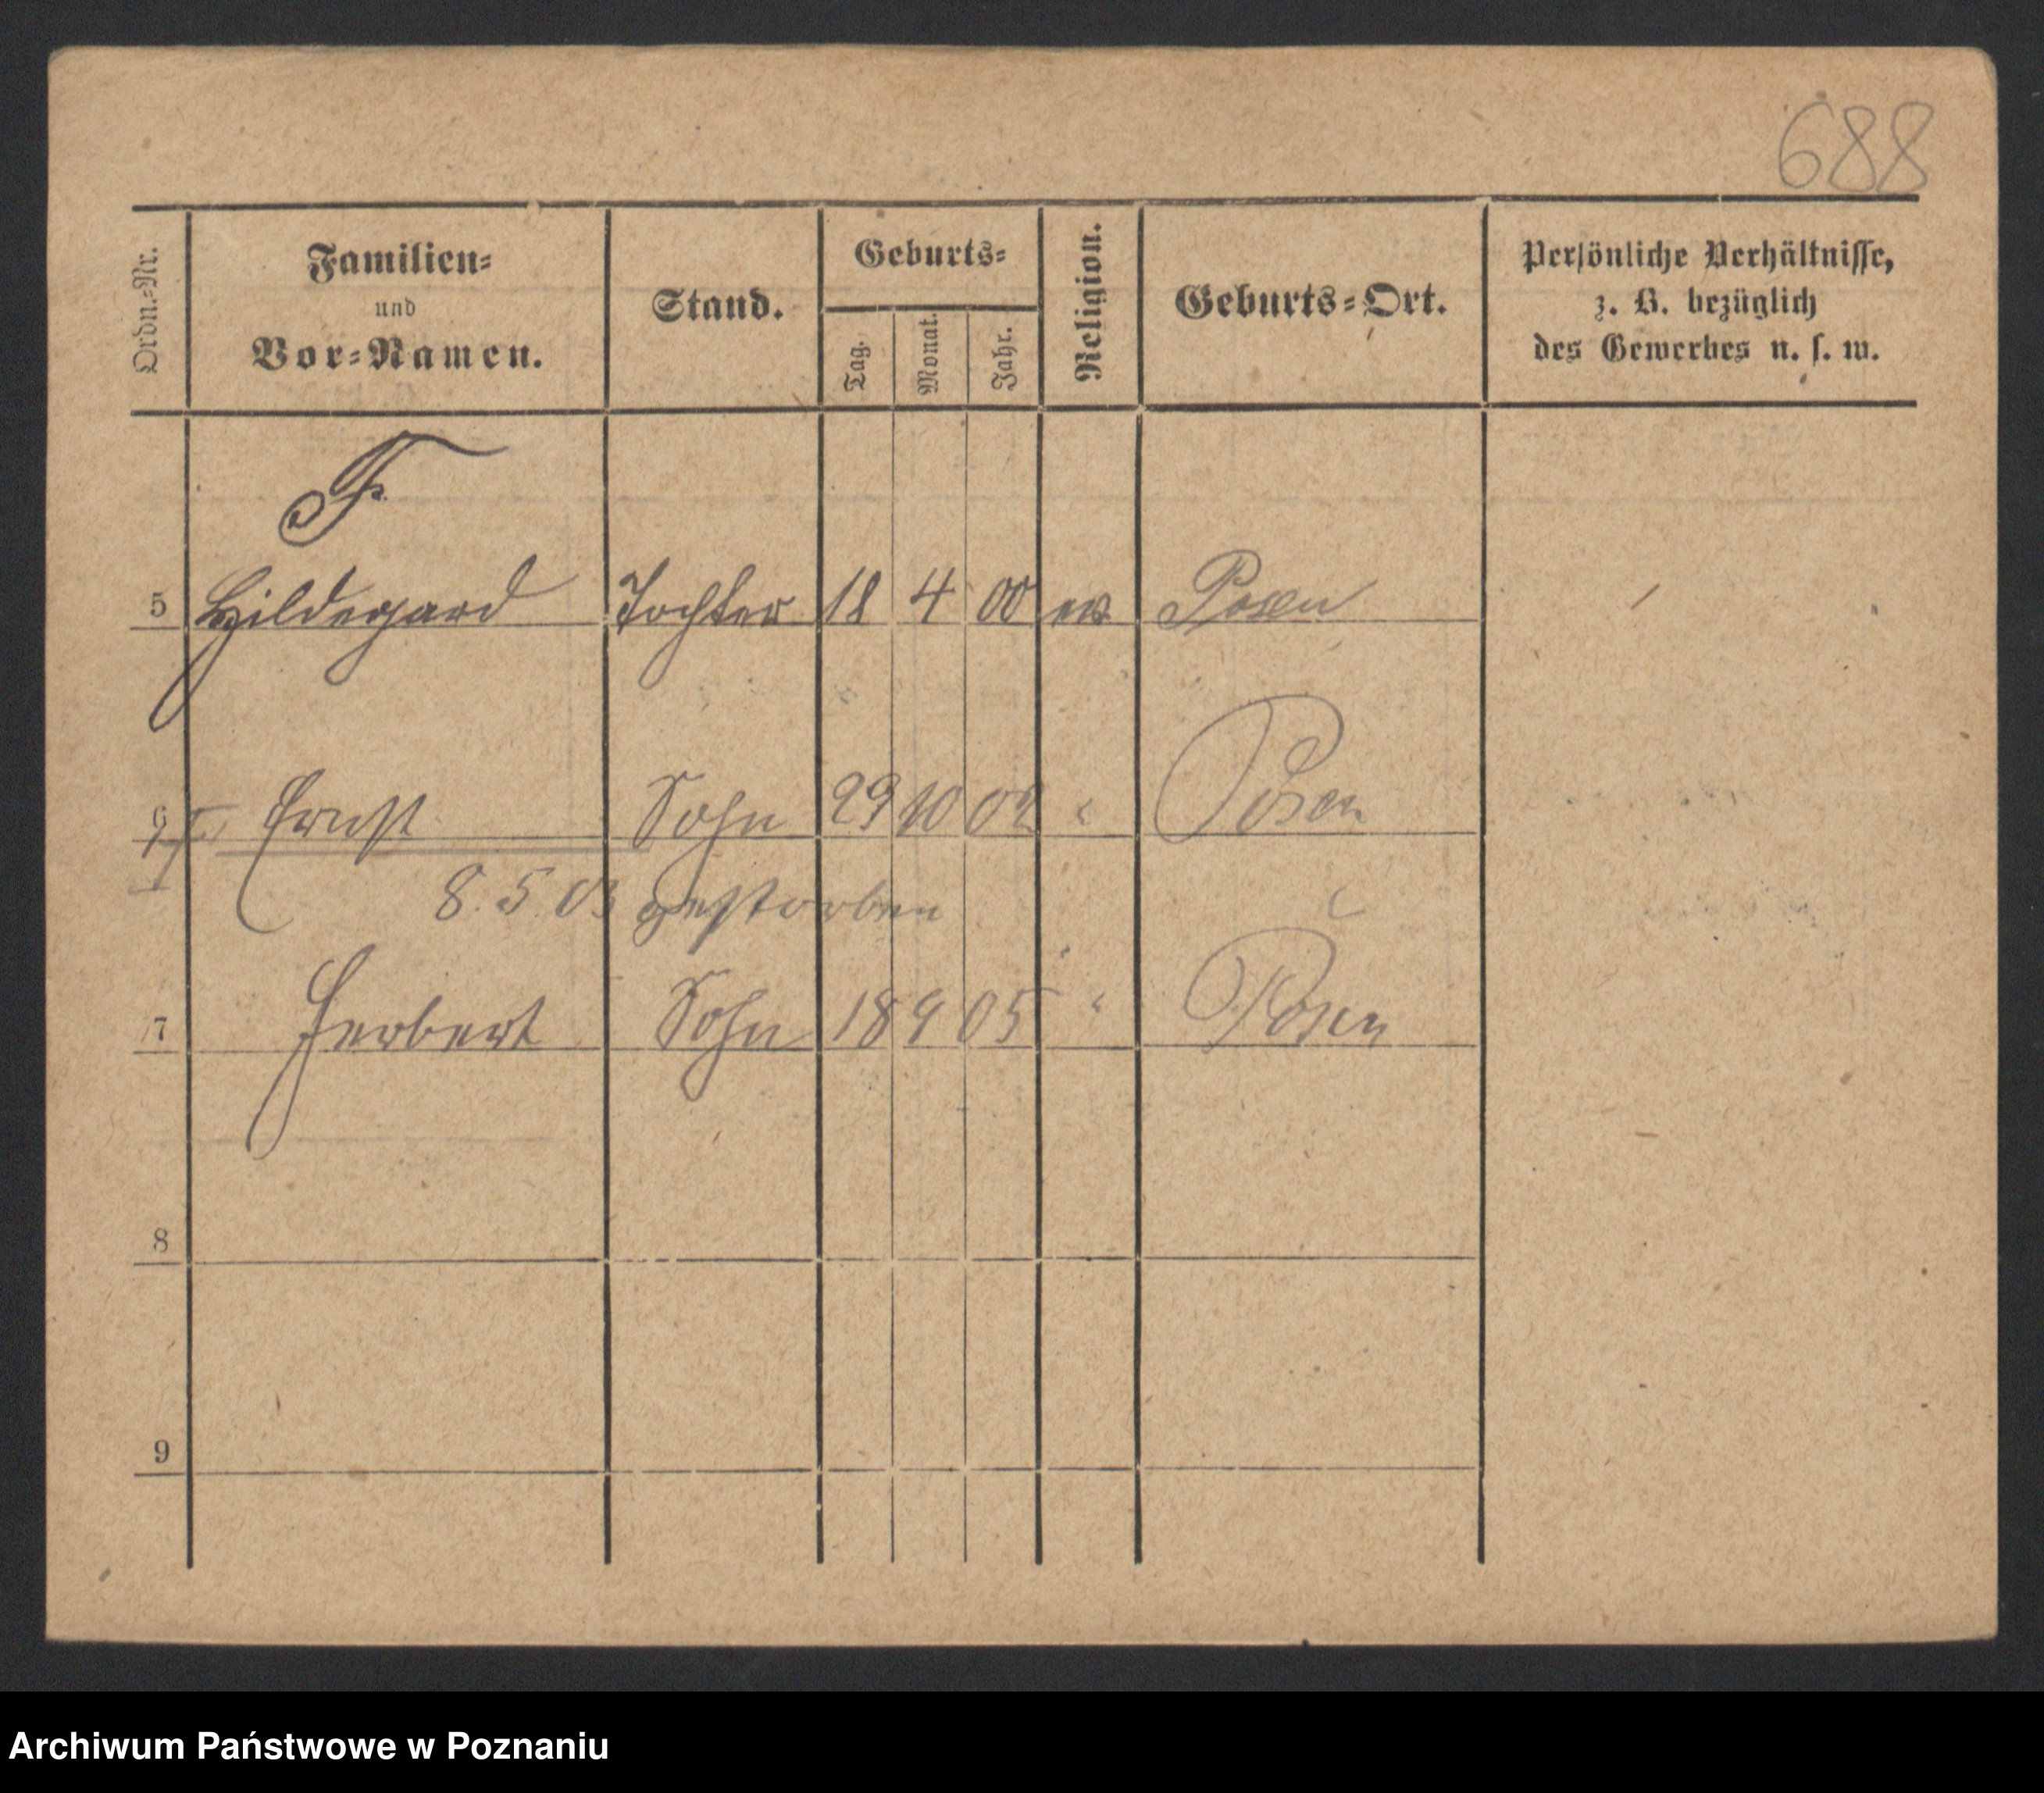 688
Ordn.-Nr.
Familien-
und
Vor-Namen.
Stand.
Geburts-
Tag.
Monat.
Jahr.
Religion.
Geburts-Ort.
Persönliche Verhältnisse,
z. B. bezüglich
des Gewerbes u. s. w.
F.
5 Hildegard Tochter 18 4 00 ev Posen
6 Ernst Sohn 29 10 02 " Posen
8. 5. 03 gestorben
7 Herbert Sohn 18 9 05 " Posen
8
9
Archiwum Państwowe w Poznaniu